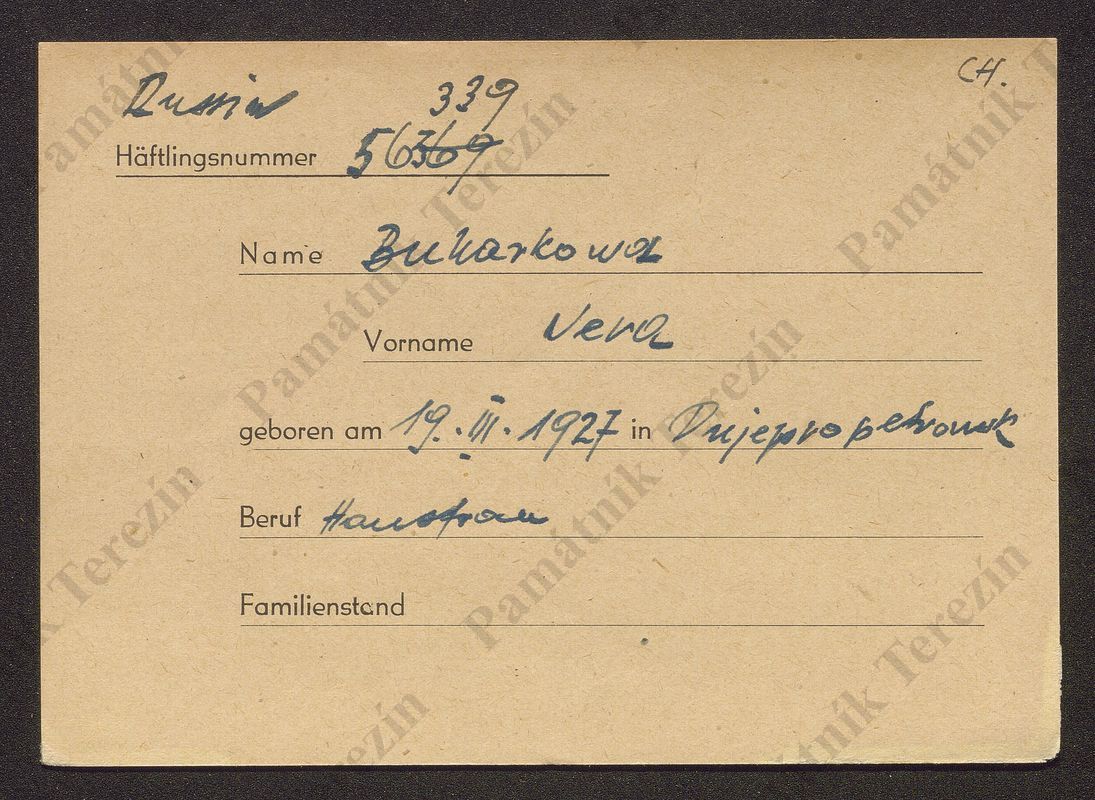 CH.
Russin 339
Häftlingsnummer 56369
Name Bukarkowa
Vorname Vera
geboren am 19. III. 1927 in Dnjepropetrowsk
Beruf Hausfrau
Familienstand
Památník Terezín